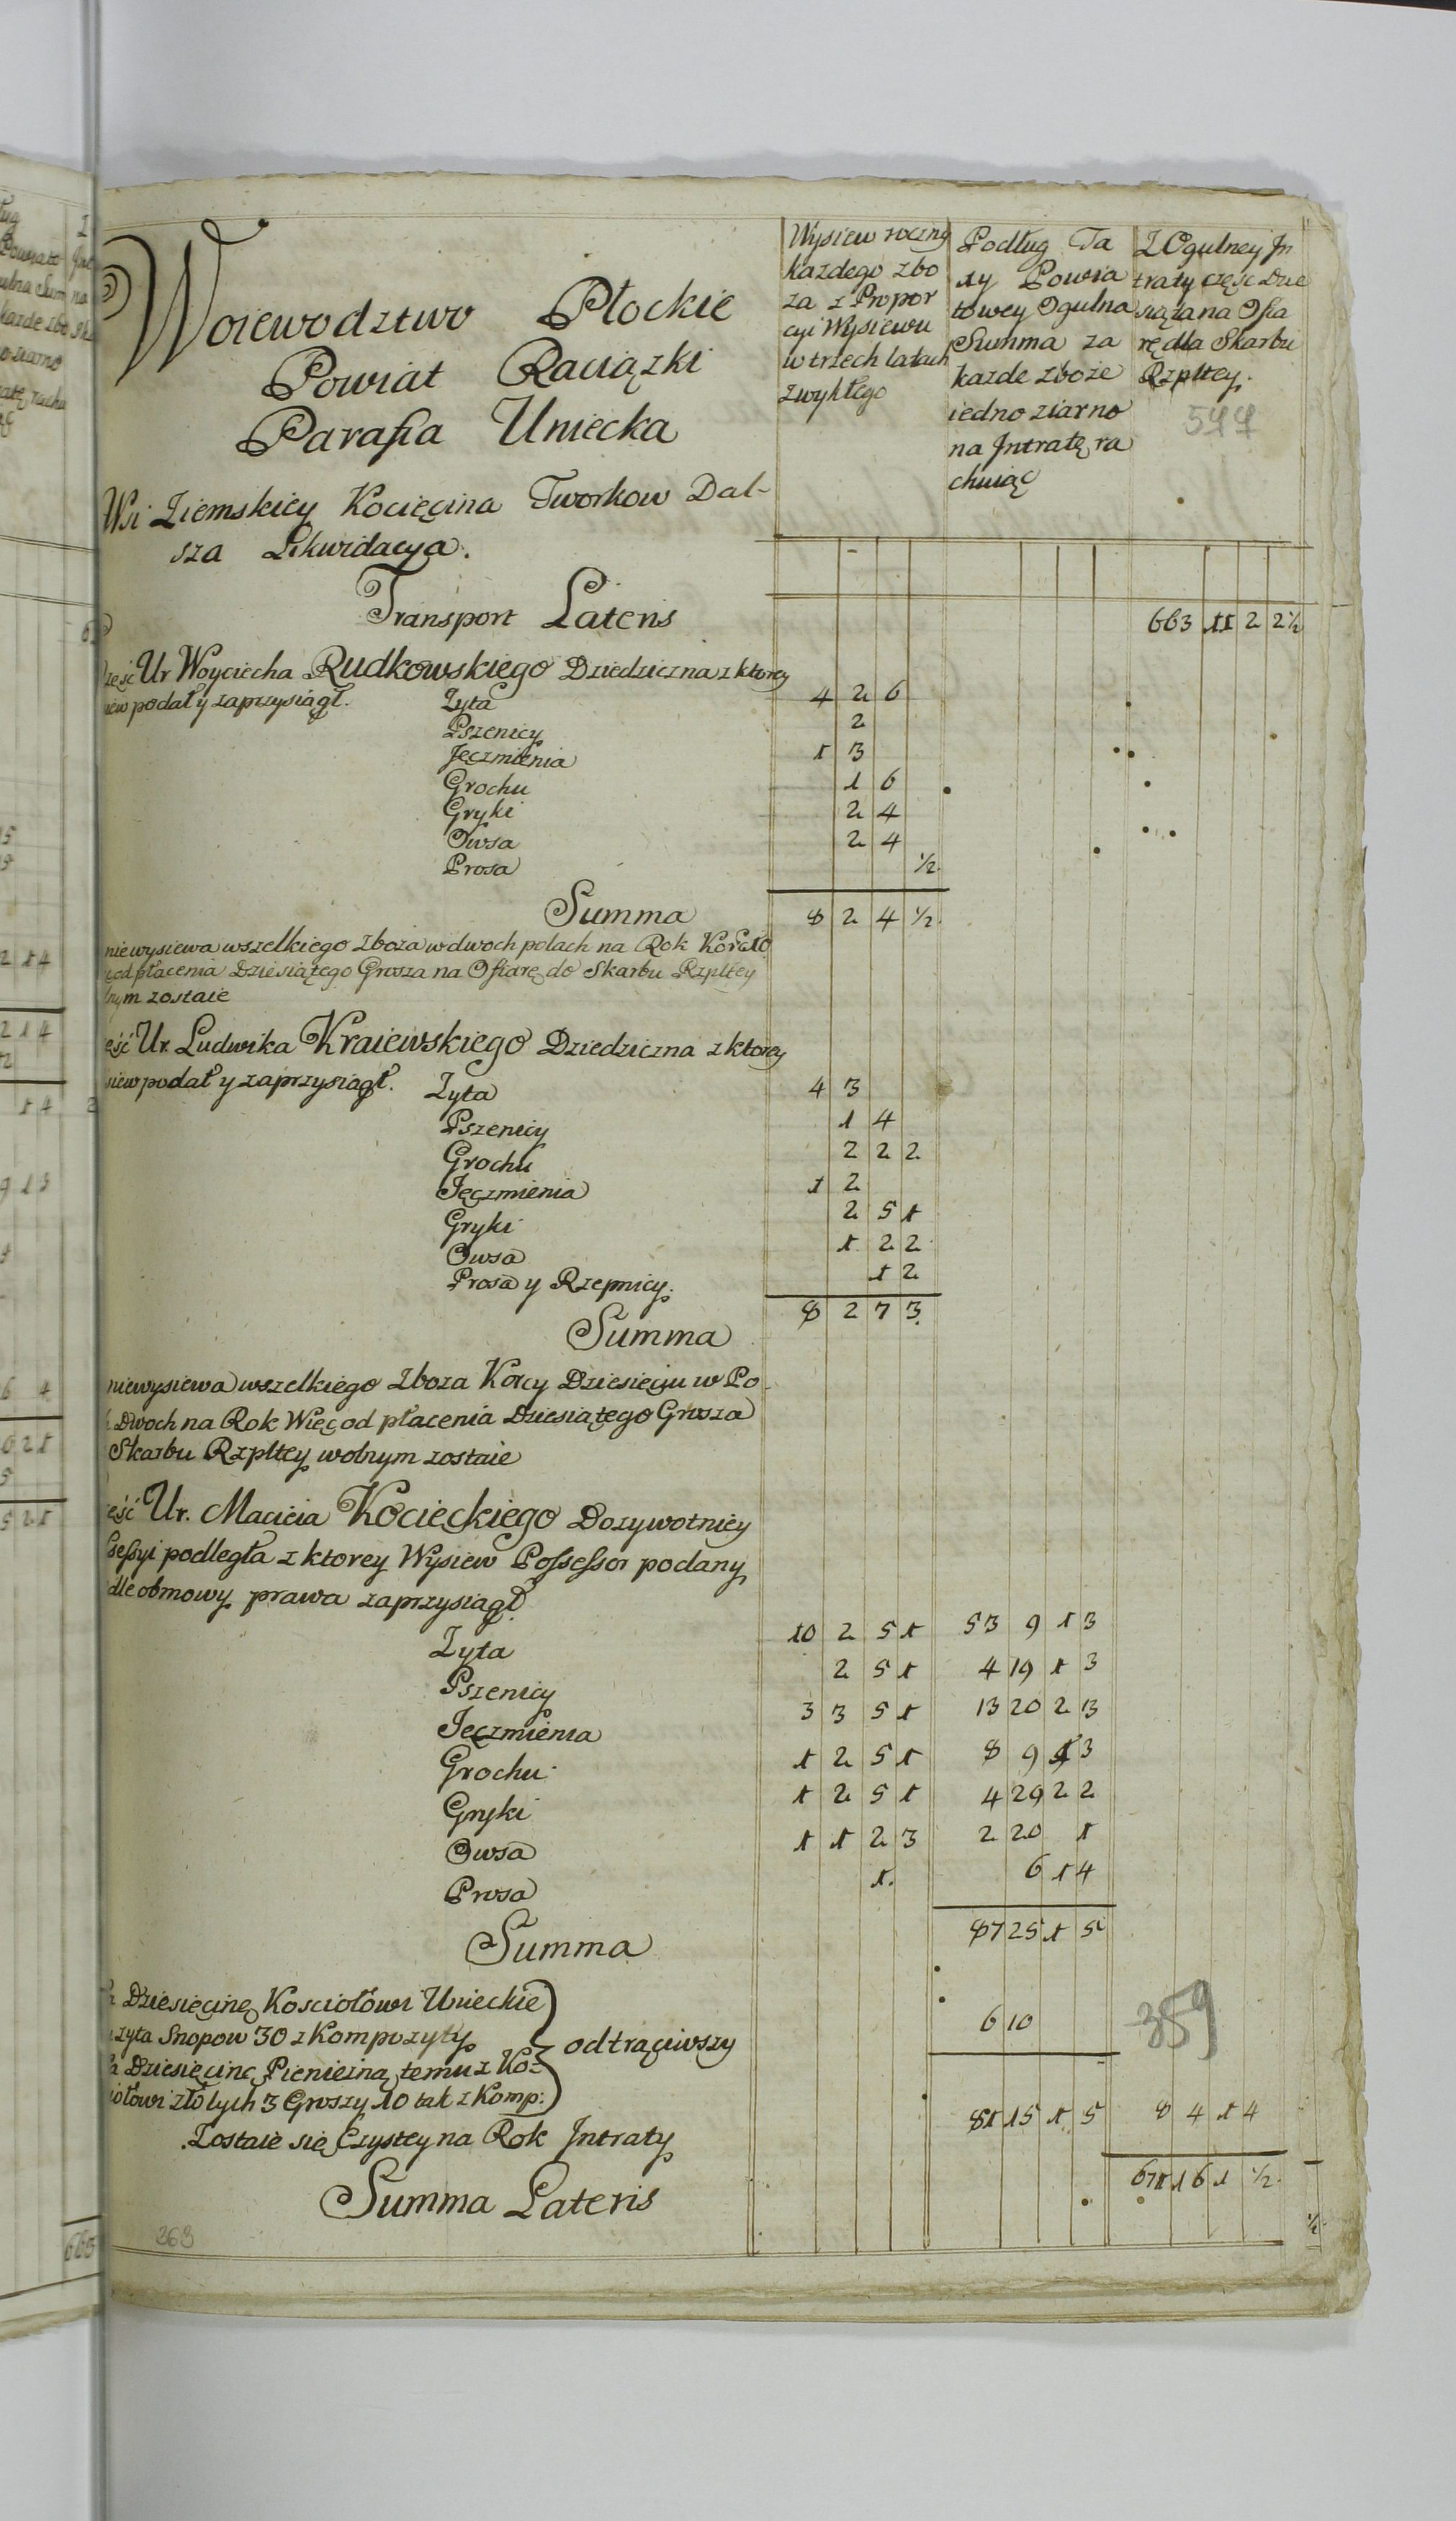 Woiewodztwo Płockie
Powiat Raciązki
Parafia Uniecka
Wsi Ziemskiey Kocięcina Tworkow Dal-
sza Likwidacya.
Wysiew roczny
kazdego zbo
za z Propor
cyi Wysiewu
w trzech latach
zwykłego
Podług Ta
xy Powia
towey Ogulna
Summa za
kazde zboze
iedno ziarno
na Jntratę ra
chuiąc
Z Ogulney Jn
traty częsc Dzie
siąta na Ofia
rę dla Skarbu
Rzpltey.
Transport Lateris 663 11 2 2½
zesć Ur Woyciecha Rudkowskiego Dziedziczna z ktorey
iew podał y zaprzysiągł.
Zyta 4 2 6
Pszenicy 2
Jęczmienia 1 3
Grochu 1 6
Gryki 2 4
Owsa 2 4
Prosa ½
Summa 8 2 4 ½
niewysiewa wszelkiego Zboza w dwoch polach na Rok Korc 10
od płacenia Dziesiątego Grosza na Ofiarę do Skarbu Rzpltey
lnym zostaie
ęść Ur. Ludwika Kraiewskiego Dziedziczna z ktorey
siew podał y zaprzysiągł.
Zyta 4 3
Pszenicy 1 4
Grochu 2 2 2
Jęczmienia 1 2
Gryki 2 5 1
Owsa 1 2 2
Prosa y Rzepnicy. 1 2
Summa 8 2 7 3
niewysiewa wszelkiego Zboza Korcy Dziesięciu w Po-
Dwoch na Rok Więc od płacenia Dziesiątego Grosza
Skarbu Rzpltey wolnym zostaie
ęść Ur. Macieia Kocięckiego Dozywotniey
ssessyi podległa z ktorey Wysiew Possessor podany
dle obmowy prawa zaprzysiągł.
Zyta 10 2 5 1 53 9 1 3
Pszenicy 2 5 1 4 19 1 3
Jęczmienia 3 3 5 1 13 20 2 3
Grochu 1 2 5 1 8 9 1 3
Gryki 1 2 5 1 4 29 2 2
Owsa 1 1 2 3 2 20 1
Prosa 1. 6 1 4
Summa 87 25 1 5
Dziesięcinę Kosciołowi Unieckie
zyta Snopow 30 z Kompozyty
Dziesięcinę Pieniezną temuz Ko-
iołowi złotych 3 Groszy 10 tak z Komp:
odtrąciwszy 6 10
Zostaie się Czystey na Rok Jntraty 81 15 1 5 8 4 1 4
Summa Lateris 671 16 1 ½
359
363